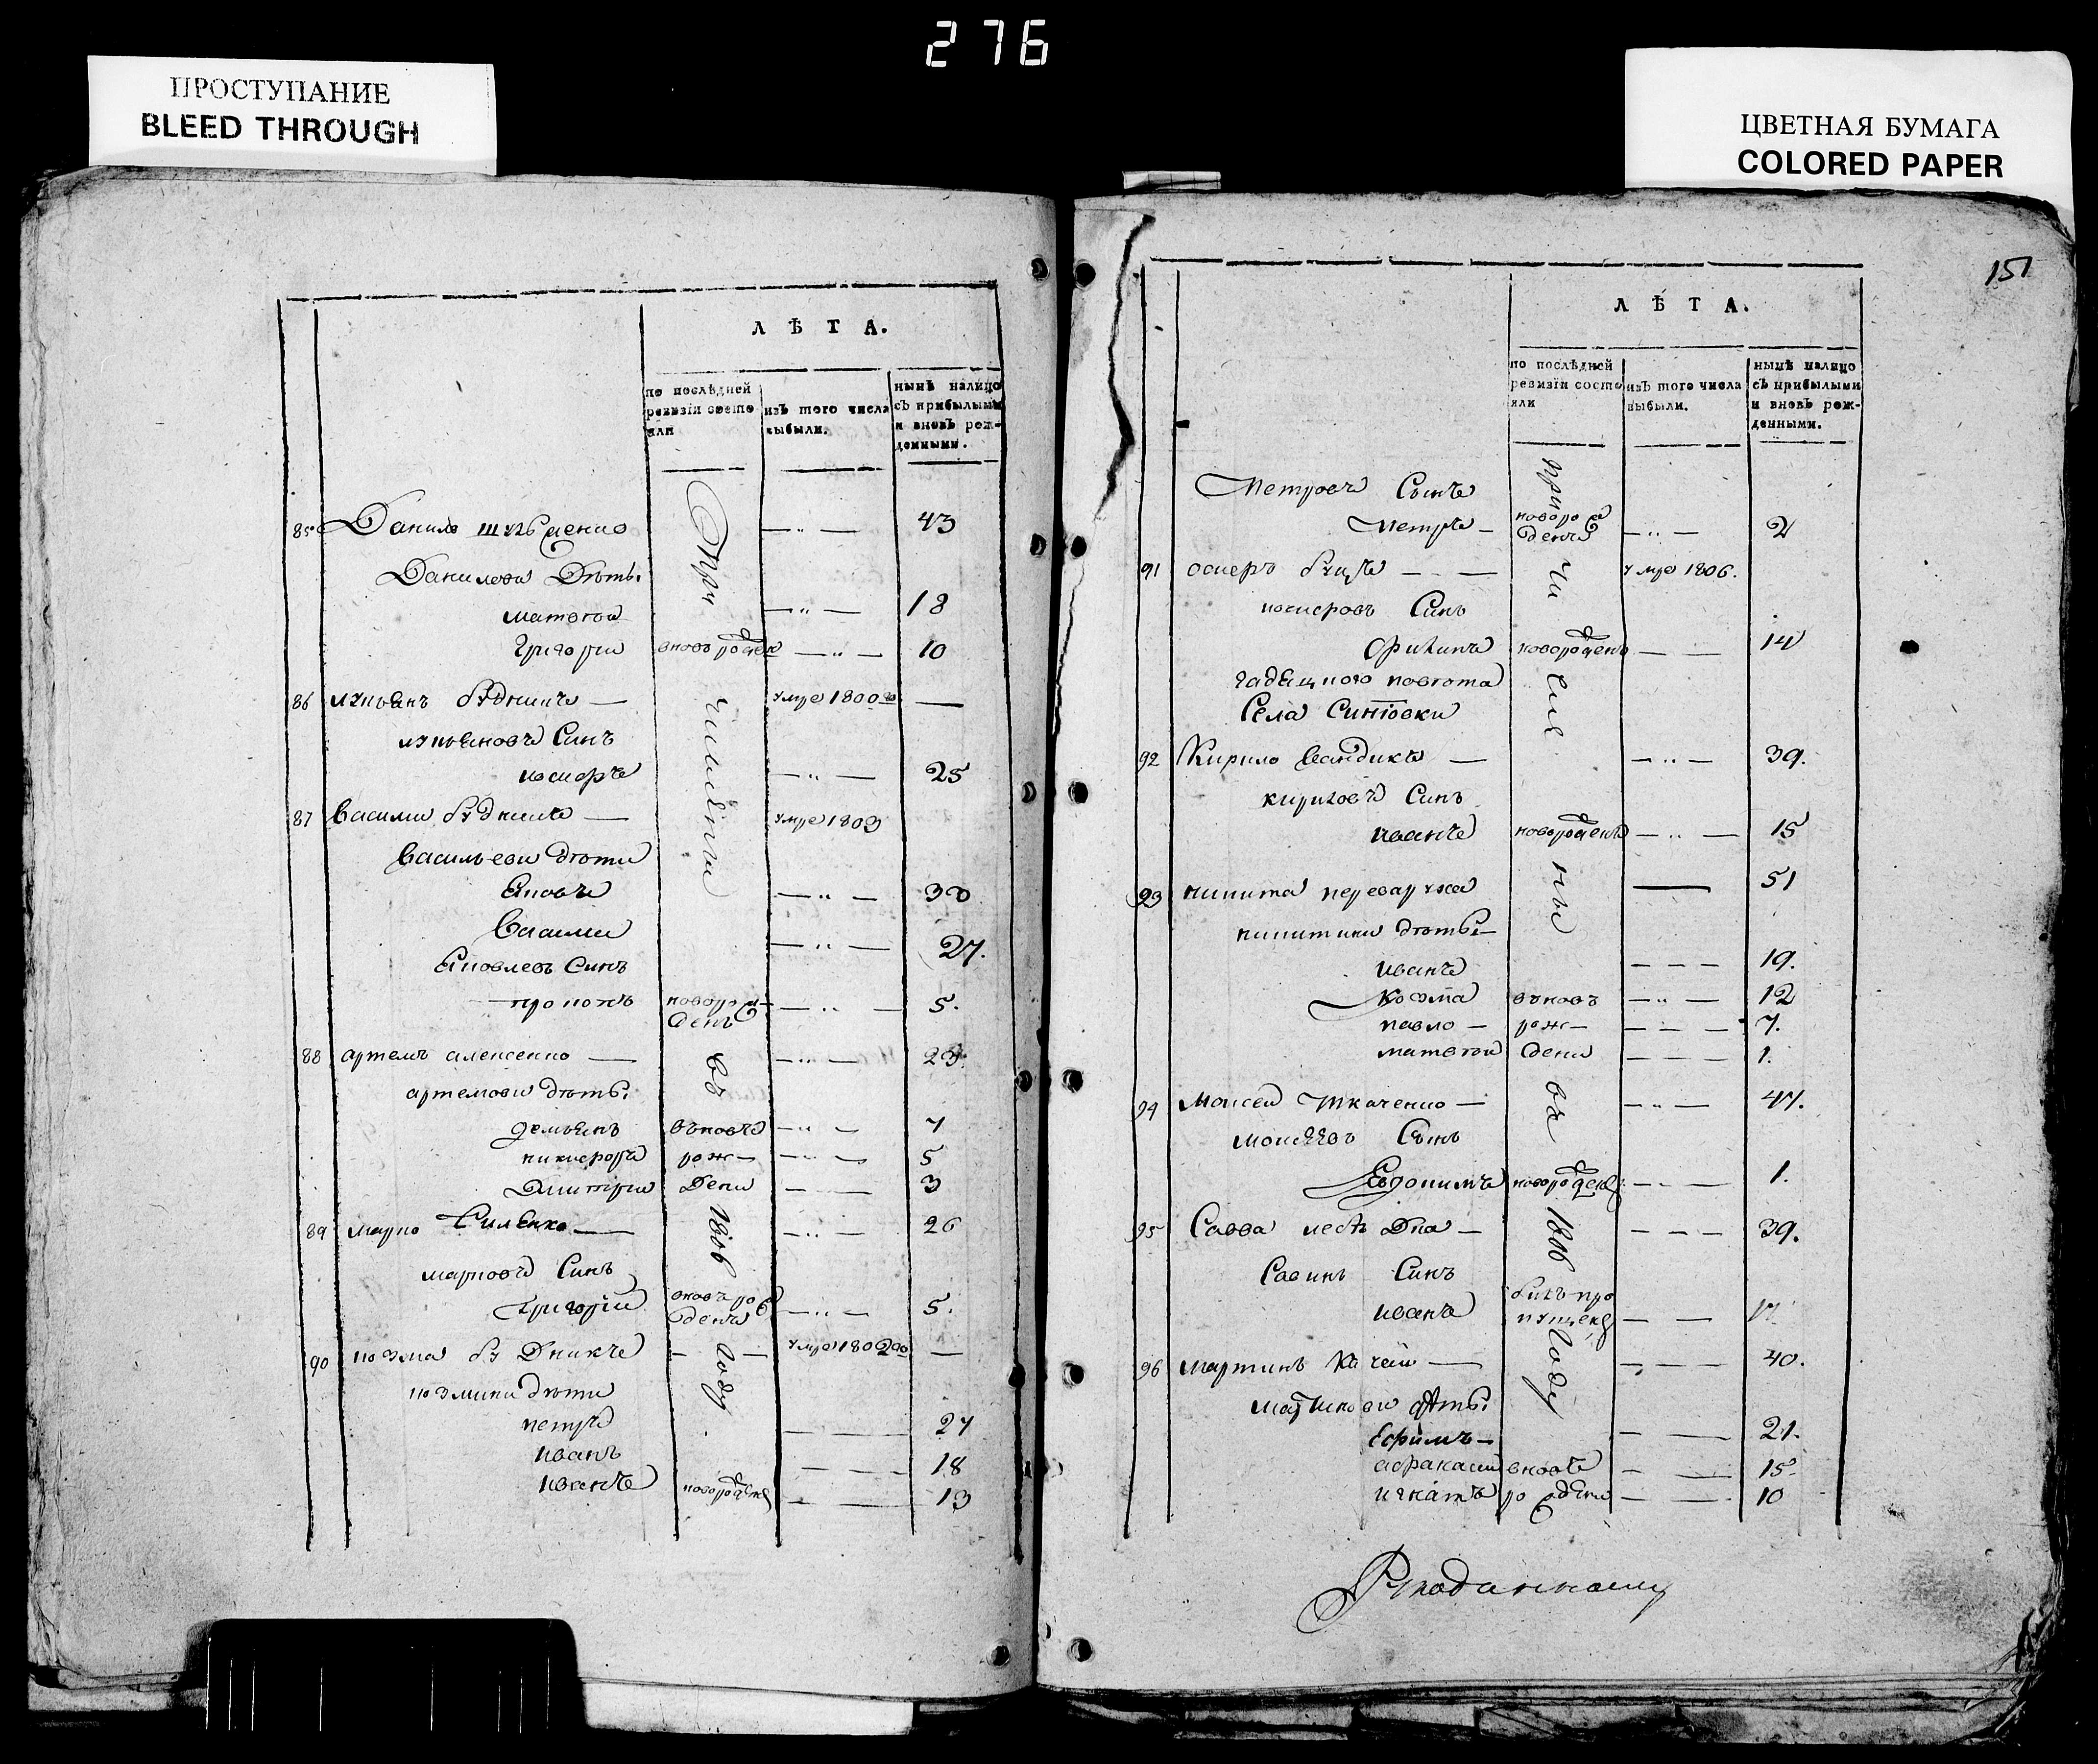 276
ПРОСТУПАНИЕ
BLEED THROUGH
ЦВЕТНАЯ БУМАГА
COLORED PAPER
ЛѢТА.
по послѣдней ревизіи состояли
изъ того числа выбыли.
нынѣ налицо съ прибылыми и вновь рожденными.
85 Данило 43
Данилови Дѣти
матвѣй 18
Григорій вновърожден 10
86 лукьянъ будникъ умре 1800го
лукьяновъ Синъ
иосифъ 25
87 Василій будникъ умре 1803
Васильеви дѣти
Яковъ 30
Василій 27.
Яковлевъ Синъ
прокопъ новорожденъ 5.
88 артемъ алексенко
артемови дѣти
демьянъ вновъ 7
никифоръ рож 5
Дмитрій Дени 3
89 марко Силенко 26
марковъ Синъ
Григорій вновърожденъ 5.
90 козма будникъ умре 1802го
козмини дѣти
петръ 27
иванъ 18
иванъ новорожден 13
Причислени въ 1806 году
151
ЛѢТА.
по послѣдней ревизіи состояли
изъ того числа выбыли.
нынѣ налицо съ прибылыми и вновь рожденными.
Петровъ Сынъ
Петръ новорожденъ 2
91 осифъ умре 1806.
иосифовъ Синъ
новорожденъ 14
гадяцкого повѣта
Села Синіовки
92 Кирило 39.
кириловъ Синъ
иванъ новорожденъ 15
93 никита переваруха 51
никитини дѣти
иванъ 19.
Козма вновъ 12
павло рож 7.
матвѣй дени 1.
94 Моисей Ткаченко 47.
моисѣевъ Сынъ
Евдокимъ новорожден 1.
95 Савва 39.
Савинъ Синъ
иванъ билъ пропущенъ 17
96 мартинъ качай 40.
мартинови дѣти
Ефимъ 21.
афанасій вновъ 15
игнатъ рождени 10
Причислени въ 1806 году